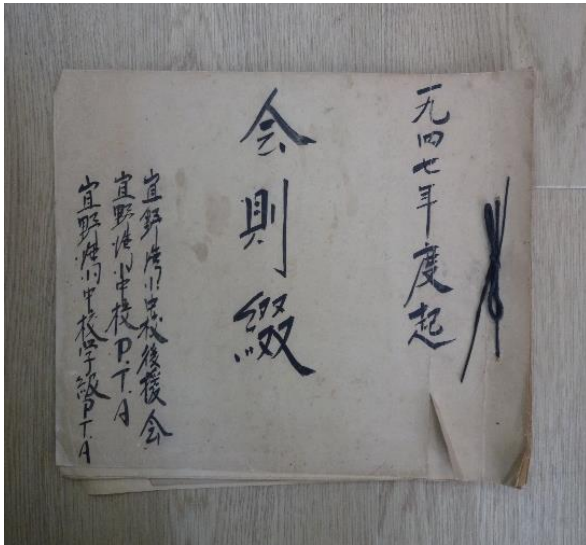 一九四七年度起
会則綴
宜野湾小中校後援会
宜野湾小中校P.T.A
宜野湾小中校学級P.T.A